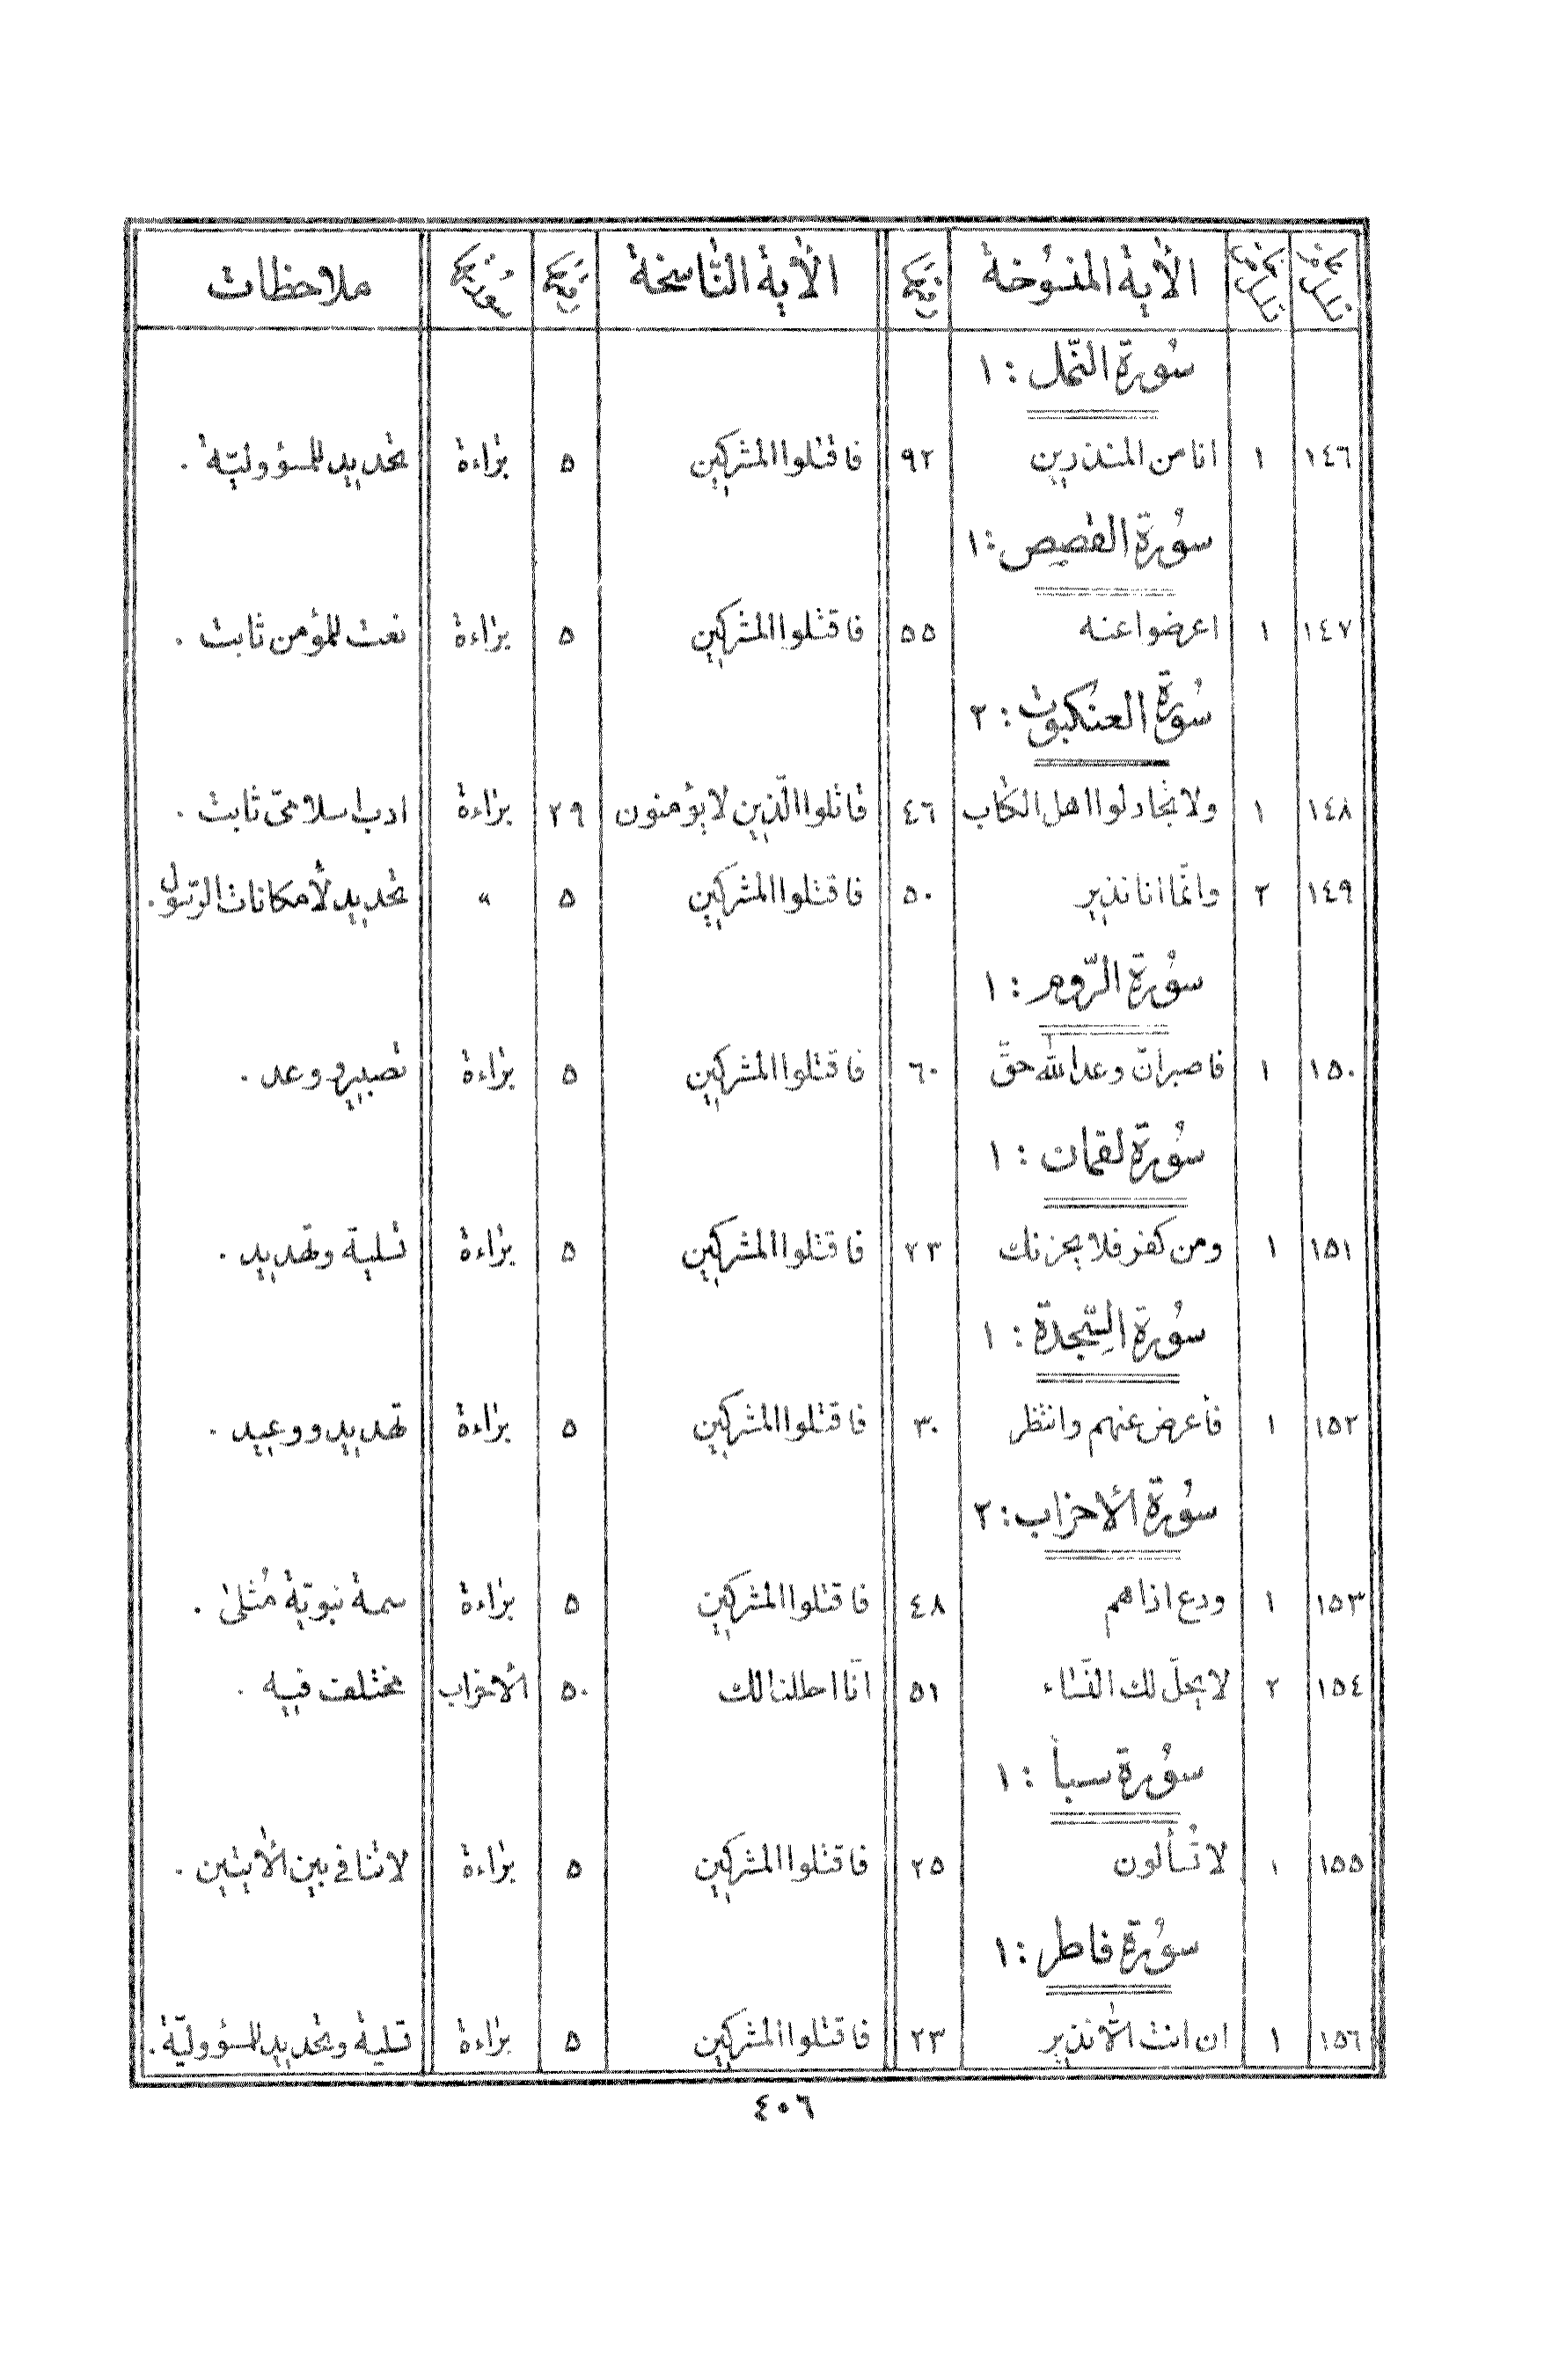 الآية المنسوخة الآية الناسخة ملاحظات
سورة النمل : ١
١٤٦ ١ انا من المنذرين ٩٢ فاقتلوا المشركين ٥ براءة تحديد للمسؤولية .
سورة القصص : ١
١٤٧ ١ اعرضوا عنه ٥٥ فاقتلوا المشركين ٥ براءة نعت للمؤمن ثابت .
سورة العنكبوت : ٢
١٤٨ ١ ولا تجادلوا اهل الكتاب ٤٦ قاتلوا الّذين لا يؤمنون ٢٩ براءة ادب اسلامي ثابت .
١٤٩ ٢ وانّما انا نذير ٥٠ فاقتلوا المشركين ٥ " تحديد لأمكانات الرّسول .
سورة الرّوم : ١
١٥٠ ١ فاصبر انّ وعد الله حقّ ٦٠ فاقتلوا المشركين ٥ براءة تصبير ووعد .
سورة لقمان : ١
١٥١ ١ ومن كفر فلا يحزنك ٢٣ فاقتلوا المشركين ٥ براءة تسلية وتهديد .
سورة السّجدة : ١
١٥٢ ١ فأعرض عنهم وانتظر ٣٠ فاقتلوا المشركين ٥ براءة تهديد ووعيد .
سورة الأحزاب : ٢
١٥٣ ١ ودع اذاهم ٤٨ فاقتلوا المشركين ٥ براءة سمة نبويّة مُثلى .
١٥٤ ٢ لا يحلّ لك النّساء ٥١ انّا احللنا لك ٥٠ الأحزاب مختلف فيه .
سورة سبأ : ١
١٥٥ ١ لا تُسألون ٢٥ فاقتلوا المشركين ٥ براءة لا تنافي بين الأيتين .
سورة فاطر : ١
١٥٦ ١ ان انت الّا نذير ٢٣ فاقتلوا المشركين ٥ براءة تسلية وتحديد للمسؤوليّة .
٤٠٦